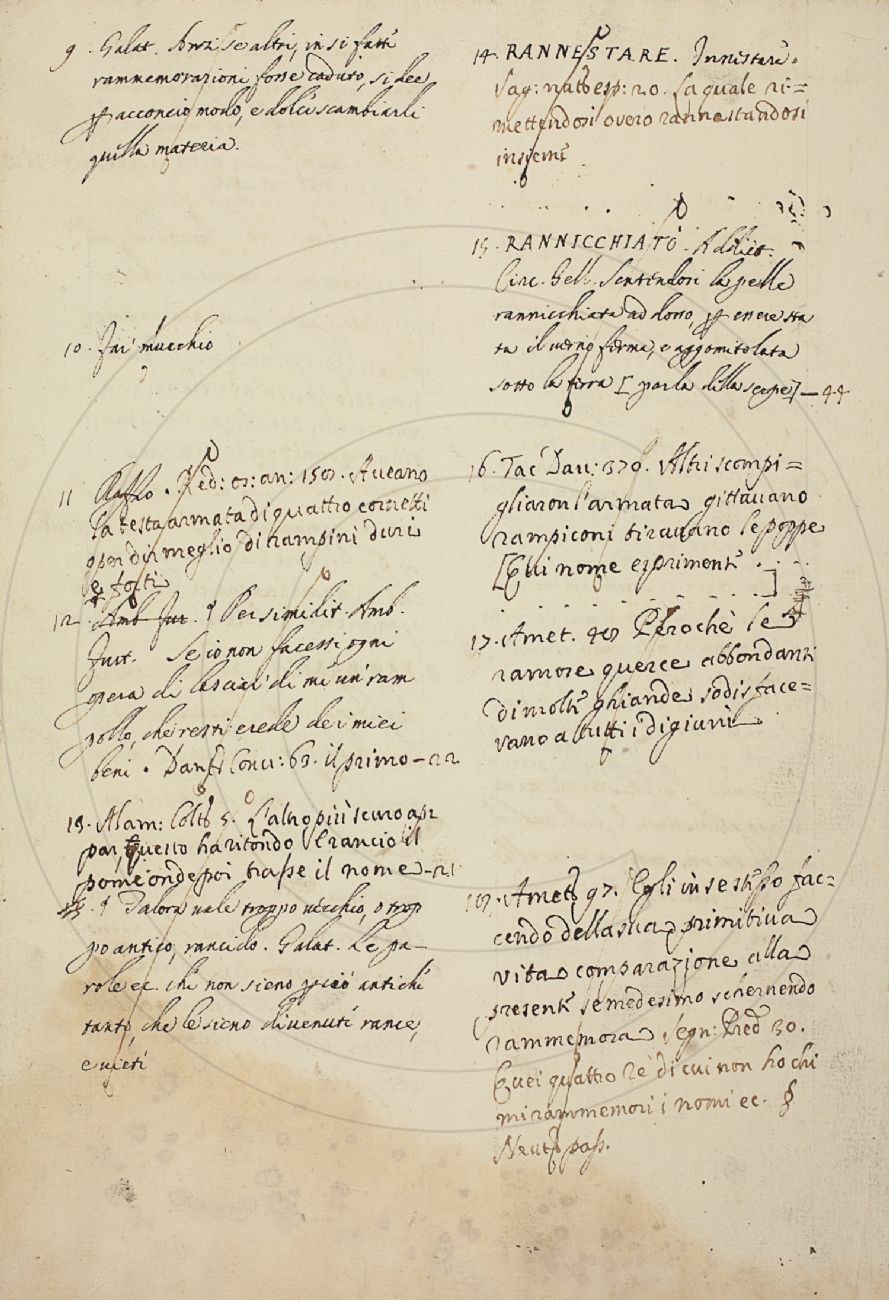 9. Galat. Anzi se altri, in sì fatte
rammemorazioni fosse caduto, si dee
per acconcio modo, e dolce scambiarli
quella materia.
10. Fai mucchio
11 Raffio. Red: an: 150. Aveano
la testa armata di quattro cornetti
o per dir meglio di rampini duri
e forti
12 Amb. Fur. § Per similit. Amb.
Furt. Se io non facessi ogni
opera di lasciar di me un ram
pollo, che resti erede de i miei
beni. Dant. Conv: 63. il primo—22
13. Alam: Colt. 5. L'altro più scuro ap
par, questo ha ritondo e rancio il
pome onde poi trasse il nome—21
§ Talora vale troppo vecchio, o trop
po antico, rancido. Galat. Le pa-
role ec. che non sieno antiche
tanto, che le sieno divenute rance,
e viete
14. RANNESTARE. Innestare.
Sag: nat. esp: 20. la quale ri=
mettendosi overo rannestandosi
insieme
15. RANNICCHIATO. Addiet.
Circ. Gell. Sentendosi la pelle
rannicchiata addosso, per essere sta
ta il verno ferma, e aggomitolata
sotto la terra [parla della serpe]—44
16. Tac. Dav: 370. Altri scompi=
gliaron l'armata gittavano
rampiconi tiravano le poppe
[Qui nome esprimente
17. Amet. Peroché le
ramose querce abbondanti
di molte ghiande sodisface=
vano a tutti i digiuni
Amet. 97. Egli in se stesso fac-
cendo della sua primitiva
vita comparazione alla
presente se medesimo schernendo
rammemora Segn: Pred. 30.
Quei quattro Re di cui non ho chi
mi rammemori i nomi ec. §
Neut. pass.